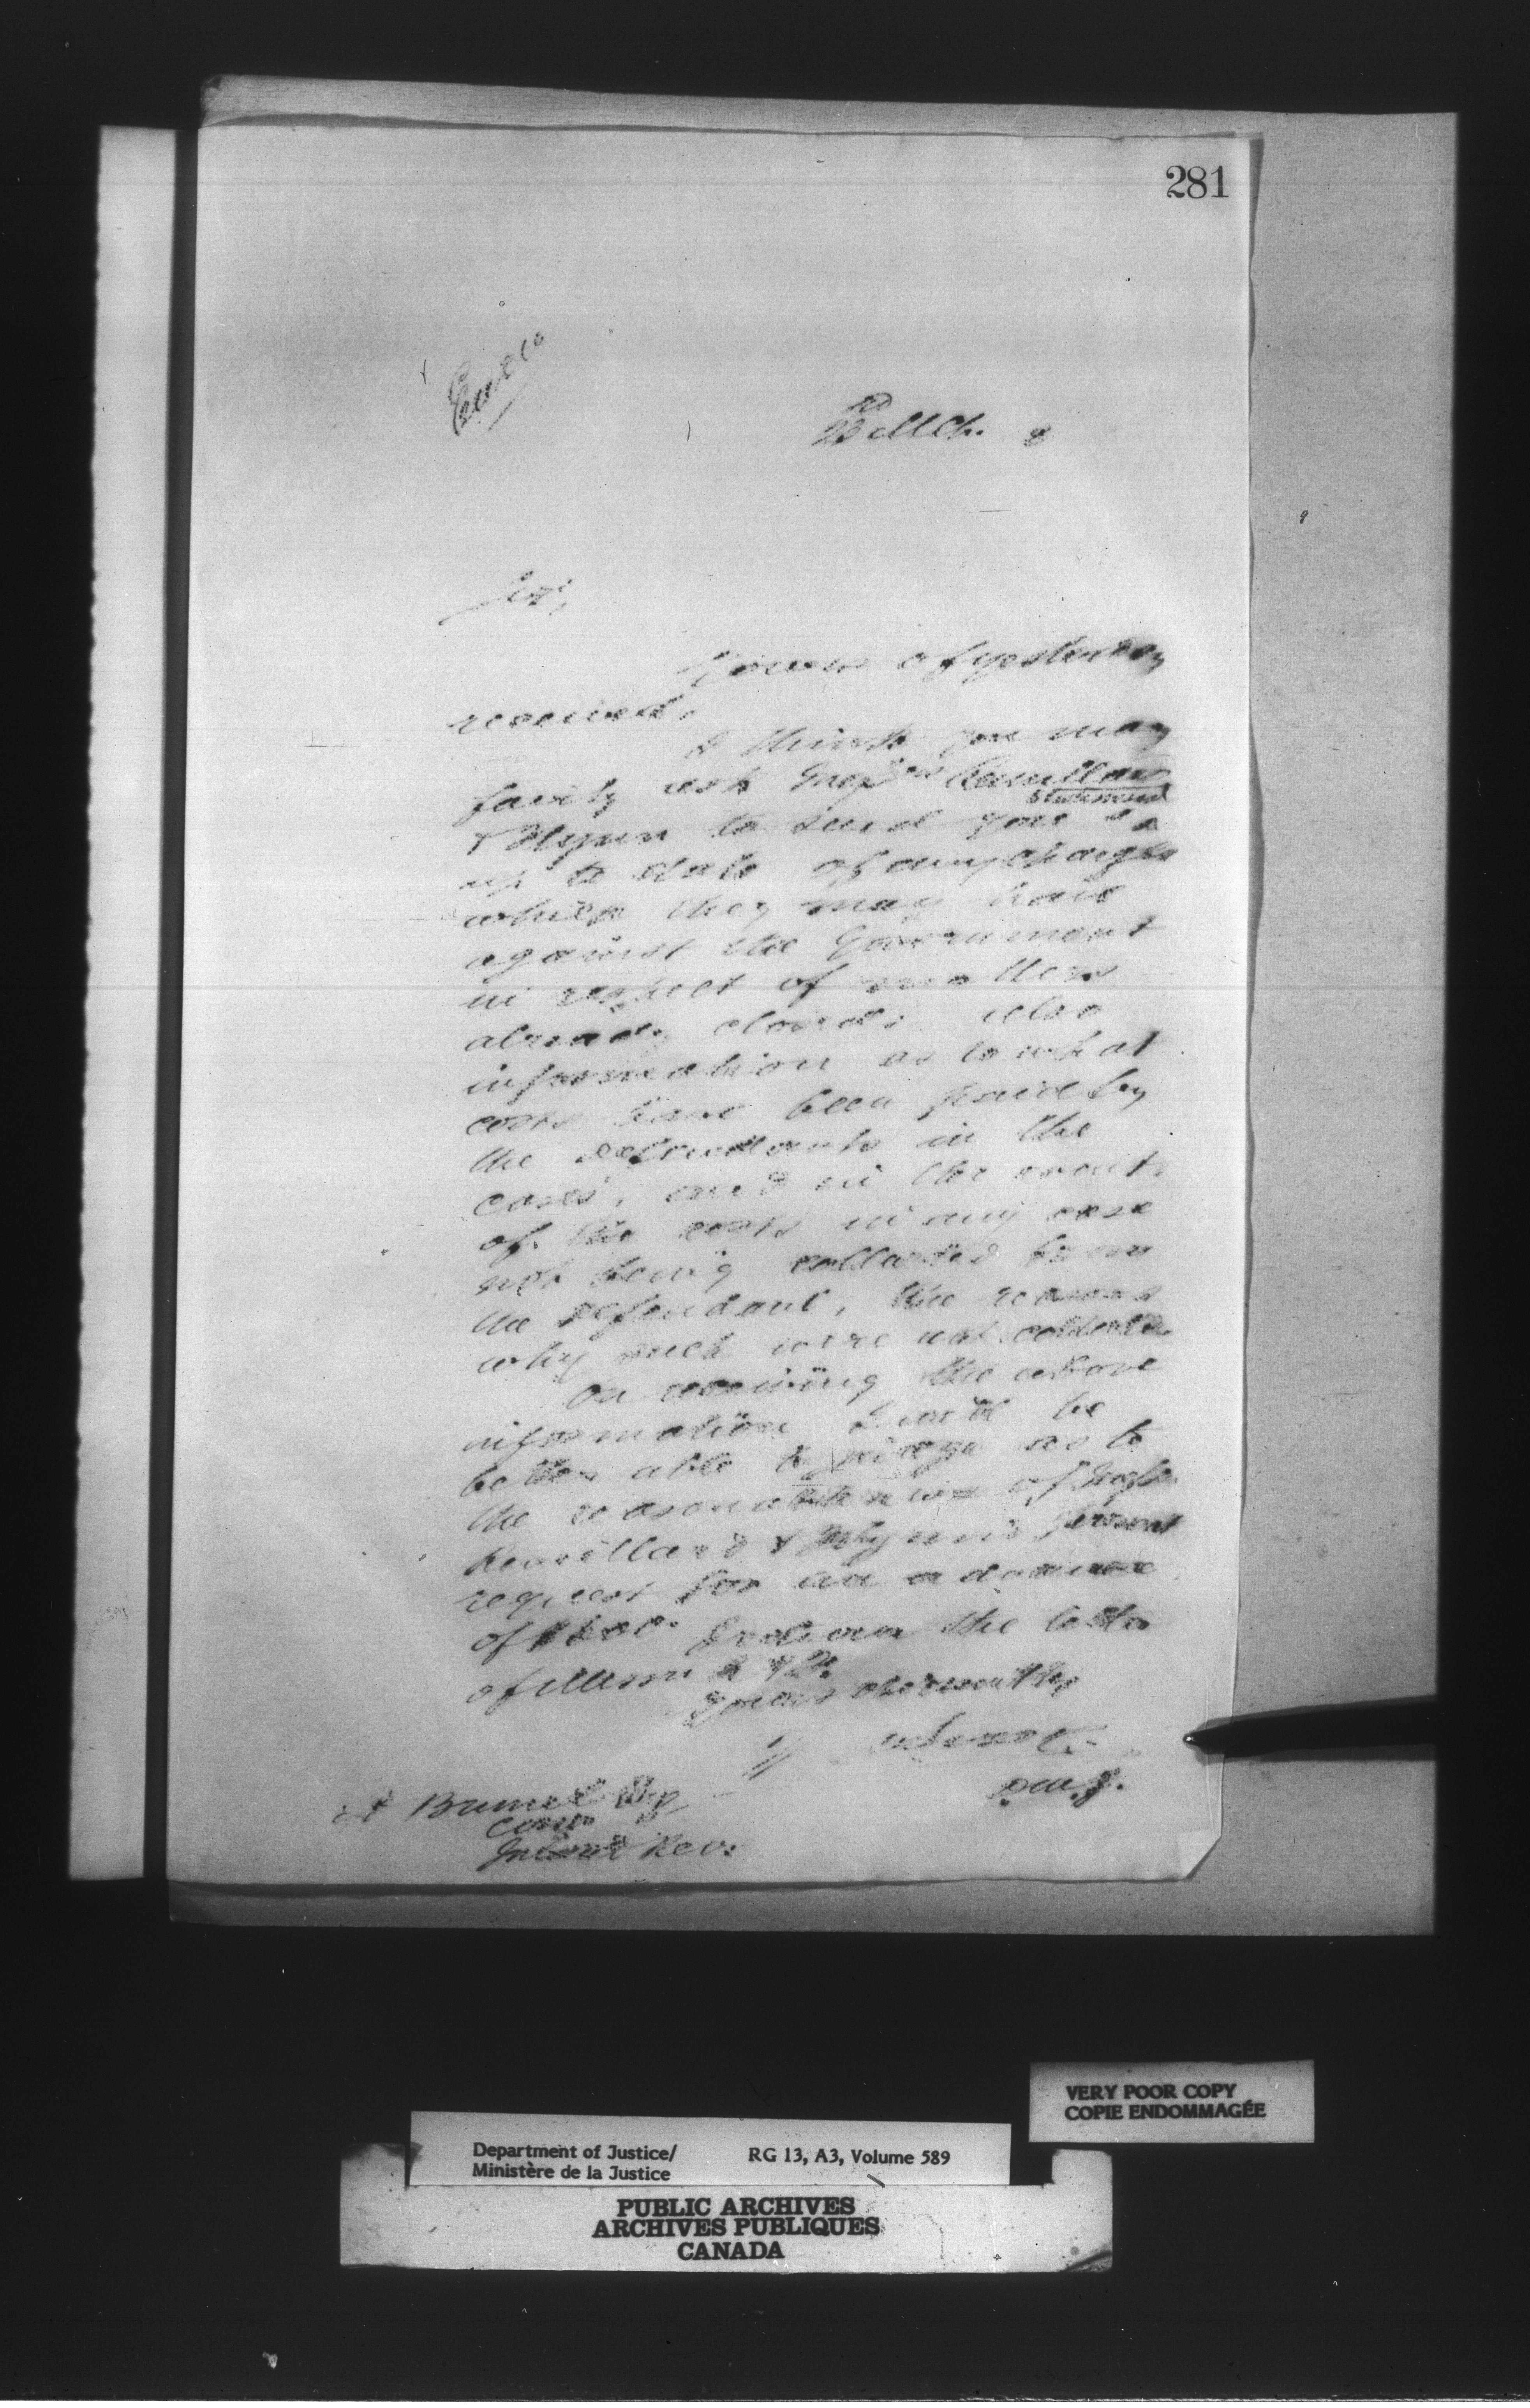 281
23 Mch. 8
Sir,
Yours of yesterday
received.
I think you may
fairly ask Mess
statement
& Flynn to send you a
up to date of any charges
which they may have
against the Government
in respect of matters
already closed; also
information as to what
costs have been paid by
the defendants in the
cases, and in the event
of the costs in any case
not being collected from
the defendant, the reasons
why such were not collected.
On receiving the above
information I will be
better able to judge as to
the reasonableness of
& Flynn's present
request for an advance
of the letter
of
Yours obediently
D.M.J.
A Brunel Esq
Com
Inland Rev.
VERY POOR COPY
COPIE ENDOMMAGÉE
Department of Justice/ RG 13, A3, Volume 589
Ministère de la Justice
PUBLIC ARCHIVES
ARCHIVES PUBLIQUES
CANADA